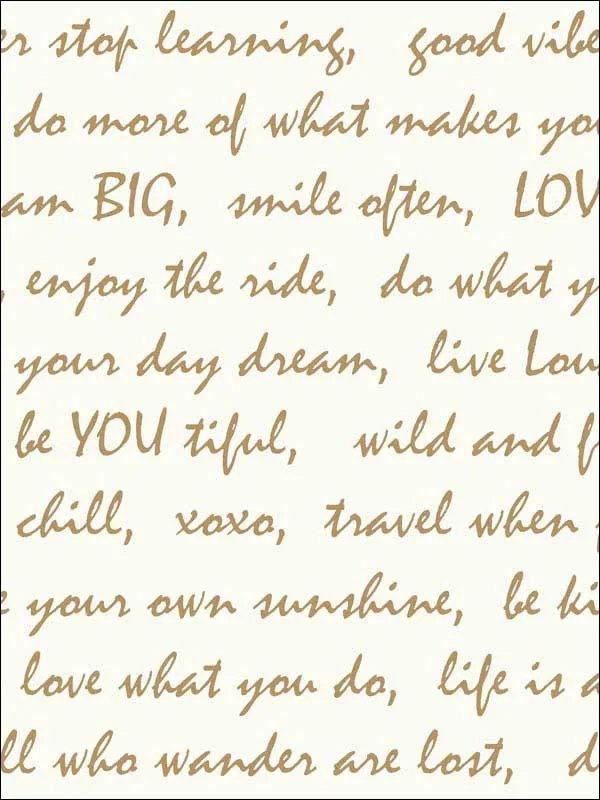 er stop learning, good vibe
do more of what makes you
am BIG, smile often, LOV
, enjoy the ride, do what y
your day dream, live Lou
be YOU tiful, wild and f
chill, xoxo, travel when
e your own sunshine, be ki
love what you do, life is a
ll who wander are lost, d